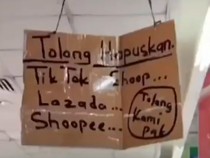 Tolong Hapuskan.
Tik Tok Shoop...
Lazada...
Shoopee...
Tolong
Kami
Pak